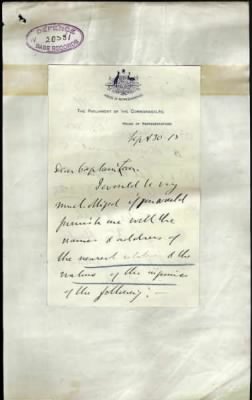 DEFENCE
20531
BASE RECORDS
HOUSE OF REPRESENTATIVES
THE PARLIAMENT OF THE COMMONWEALTH.
HOUSE OF REPRESENTATIVES
Sept 30 15
Dear Captain Lean.
I would be very
much obliged if you would
furnish me with the
names & address of
the nearest relative & the
nature of the injuries
of the following: